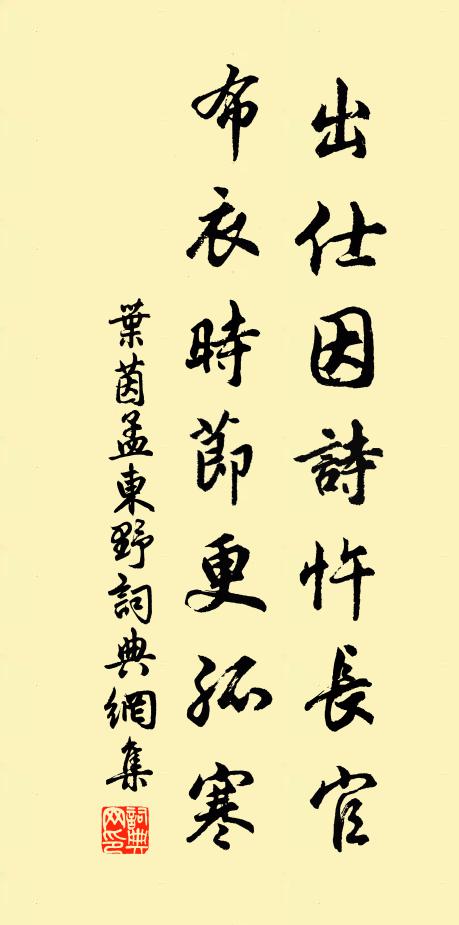 出仕因詩忤長官
布衣時節更孤寒
葉茵孟東野詞典網集
詞典網印